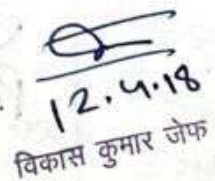 12.4.18
विकास कुमार जेफ